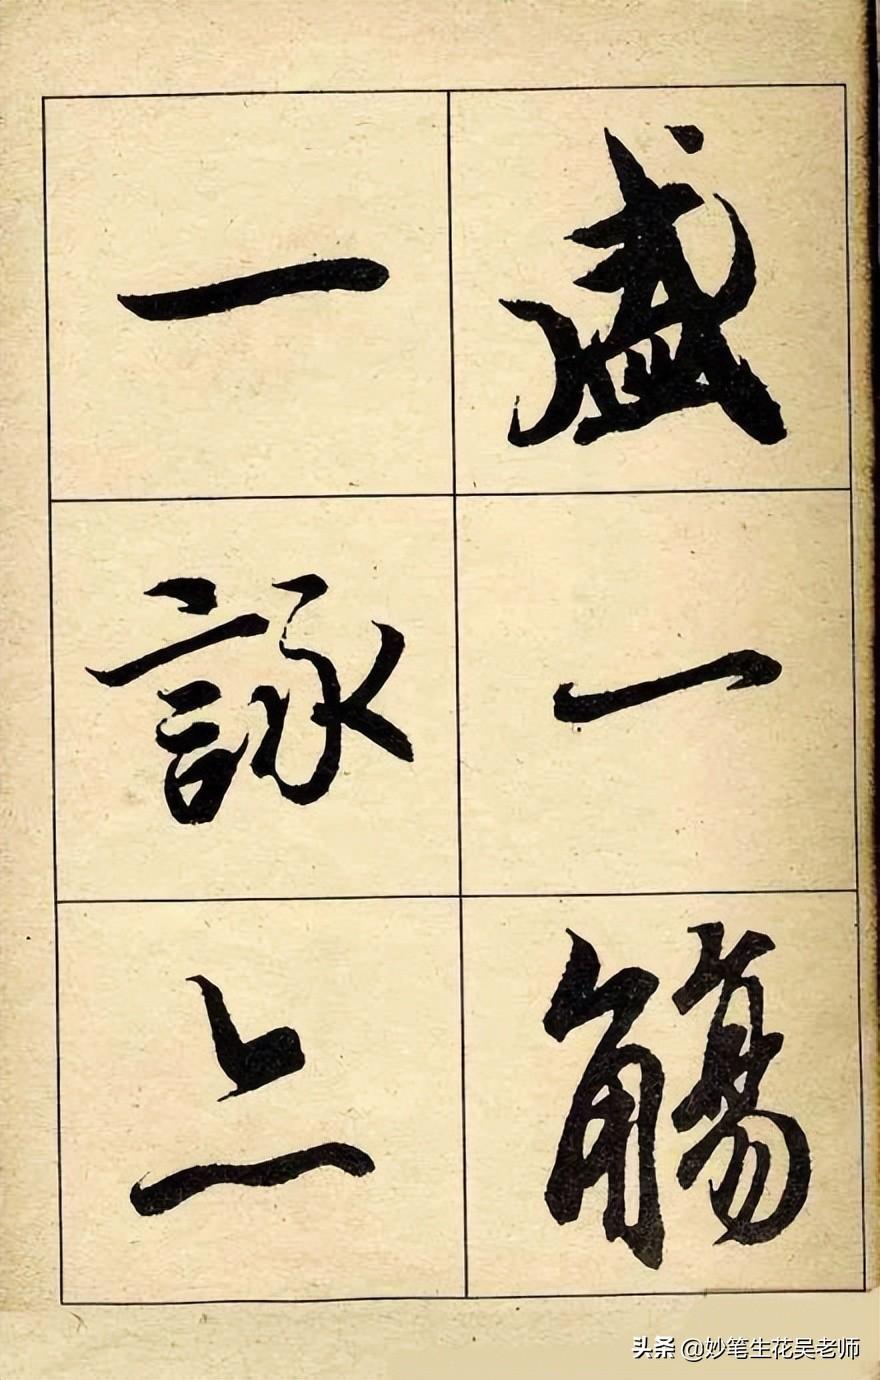 盛一觴
一詠上
头条 @妙笔生花吴老师